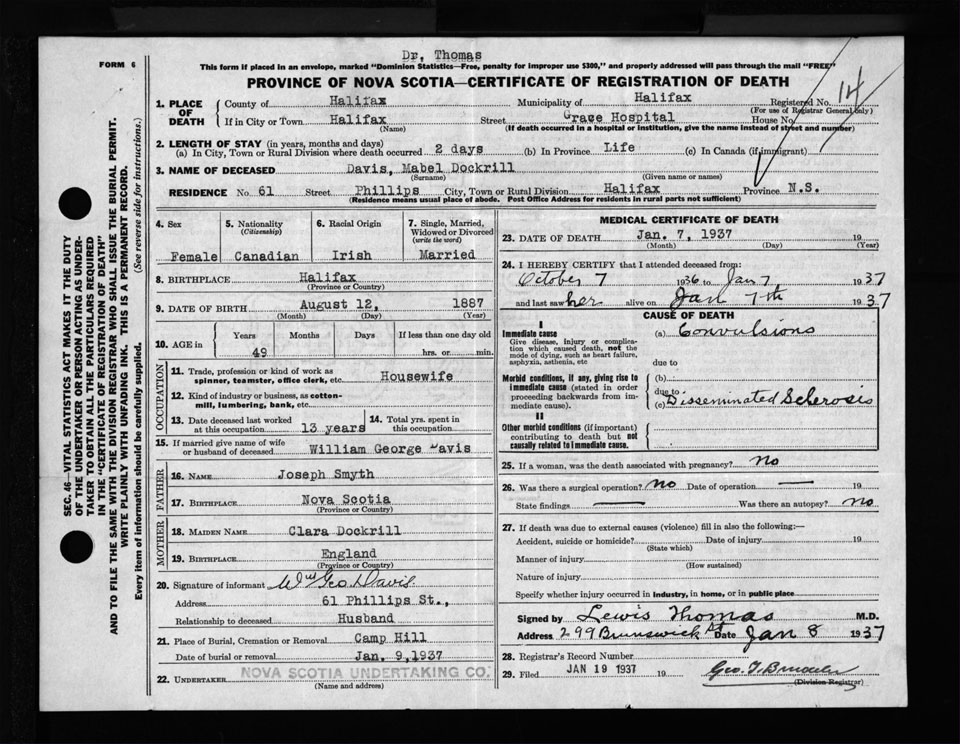 Dr. Thomas
FORM 6
This form if placed in an envelope, marked "Dominion Statistics—Free, penalty for improper use $300," and properly addressed will pass through the mail "FREE"
PROVINCE OF NOVA SCOTIA—CERTIFICATE OF REGISTRATION OF DEATH
14
1. PLACE OF DEATH
County of Halifax Municipality of Halifax Registered No.
(For use of Registrar General only)
If in City or Town Halifax Street Grace Hospital House No.
(Name) (If death occurred in a hospital or institution, give the name instead of street and number)
2. LENGTH OF STAY (in years, months and days)
(a) In City, Town or Rural Division where death occurred 2 days (b) In Province Life (c) In Canada (if immigrant)
3. NAME OF DECEASED Davis, Mabel Dockrill
(Surname) (Given name or names)
RESIDENCE No. 61 Street Phillips City, Town or Rural Division Halifax Province N.S.
(Residence means usual place of abode. Post Office Address for residents in rural parts not sufficient)
SEC. 46—VITAL STATISTICS ACT MAKES IT THE DUTY
OF THE UNDERTAKER OR PERSON ACTING AS UNDER-
TAKER TO OBTAIN ALL THE PARTICULARS REQUIRED
IN THE "CERTIFICATE OF REGISTRATION OF DEATH"
AND TO FILE THE SAME WITH THE DIVISION REGISTRAR WHO SHALL ISSUE THE BURIAL PERMIT.
WRITE PLAINLY WITH UNFADING INK. THIS IS A PERMANENT RECORD.
Every item of information should be carefully supplied. (See reverse side for instructions.)
4. Sex
Female
5. Nationality
(Citizenship)
Canadian
6. Racial Origin
Irish
7. Single, Married,
Widowed or Divorced
(write the word)
Married
8. BIRTHPLACE Halifax
(Province or Country)
9. DATE OF BIRTH August 12, 1887
(Month) (Day) (Year)
10. AGE in
Years Months Days If less than one day old
49 hrs. or min.
OCCUPATION
11. Trade, profession or kind of work as
spinner, teamster, office clerk, etc. Housewife
12. Kind of industry or business, as cotton-
mill, lumbering, bank, etc.
13. Date deceased last worked
at this occupation 13 years
14. Total yrs. spent in
this occupation
15. If married give name of wife
or husband of deceased William George Davis
FATHER
16. Name Joseph Smyth
17. BIRTHPLACE Nova Scotia
(Province or Country)
MOTHER
18. MAIDEN NAME Clara Dockrill
19. BIRTHPLACE England
(Province or Country)
20. Signature of informant Wm Geo. Davis
Address 61 Phillips St.,
Relationship to deceased Husband
21. Place of Burial, Cremation or Removal Camp Hill
Date of burial or removal Jan. 9, 1937
22. UNDERTAKER NOVA SCOTIA UNDERTAKING CO.
(Name and address)
MEDICAL CERTIFICATE OF DEATH
23. DATE OF DEATH Jan. 7, 1937 19
(Month) (Day) (Year)
24. I HEREBY CERTIFY that I attended deceased from:
October 7 1936 to Jan 7 1937
and last saw her alive on Jan 7th 1937
CAUSE OF DEATH
I
Immediate cause
Give disease, injury or complica-
tion which caused death, not the
mode of dying, such as heart failure,
asphyxia, asthenia, etc
(a) Convulsions
due to
Morbid conditions, if any, giving rise to
immediate cause (stated in order
proceeding backwards from im-
mediate cause).
(b)
due to
(c) Disseminated Sclerosis
II
Other morbid conditions (if important)
contributing to death but not
causally related to immediate cause.
25. If a woman, was the death associated with pregnancy? no
26. Was there a surgical operation? no Date of operation — 19
State findings — Was there an autopsy? no
27. If death was due to external causes (violence) fill in also the following:—
Accident, suicide or homicide? Date of injury 19
(State which)
Manner of injury
(How sustained)
Nature of injury
Specify whether injury occurred in industry, in home, or in public place
Signed by Lewis Thomas M.D.
Address 299 Brunswick St Date Jan 8 1937
28. Registrar's Record Number
29. Filed JAN 19 1937 19
(Division Registrar)